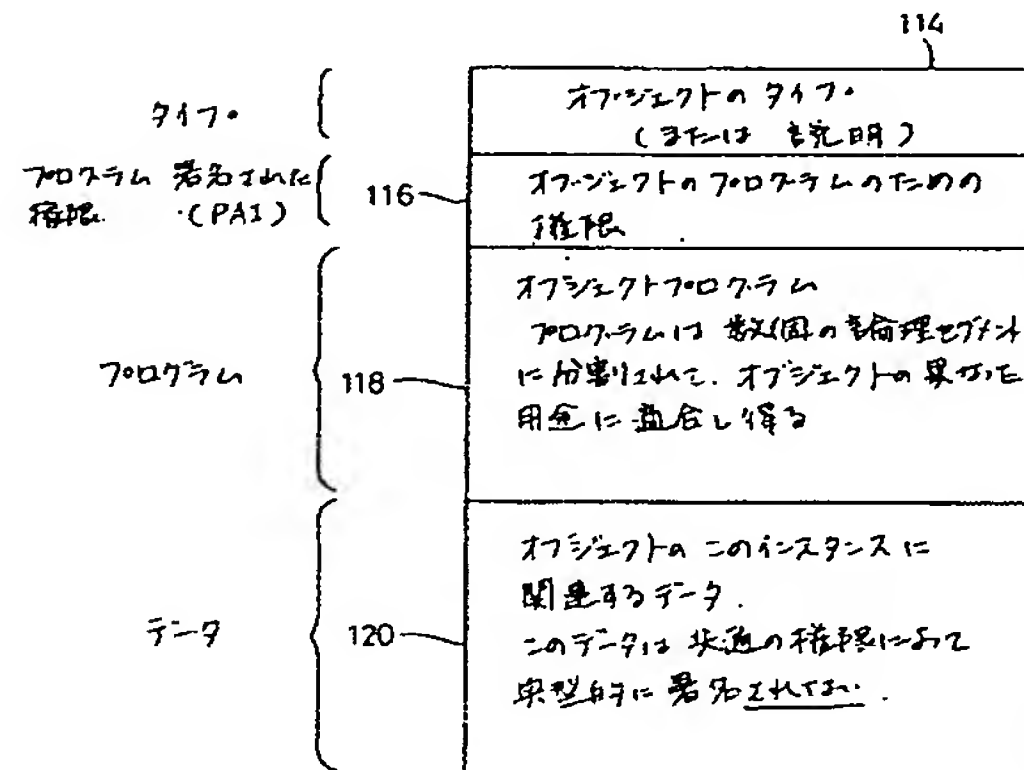 114
タイプ
オブジェクトのタイプ
(または 説明)
プログラム 署名された
権限 (PAI)
116
オブジェクトのプログラムのための
権限
プログラム
118
オブジェクトプログラム
プログラムは 数個の論理セグメント
に分割されて、オブジェクトの異なった
用途に適合し得る
データ
120
オブジェクトの このインスタンスに
関連するデータ.
このデータは 共通の権限によって
典型的に署名されてない.